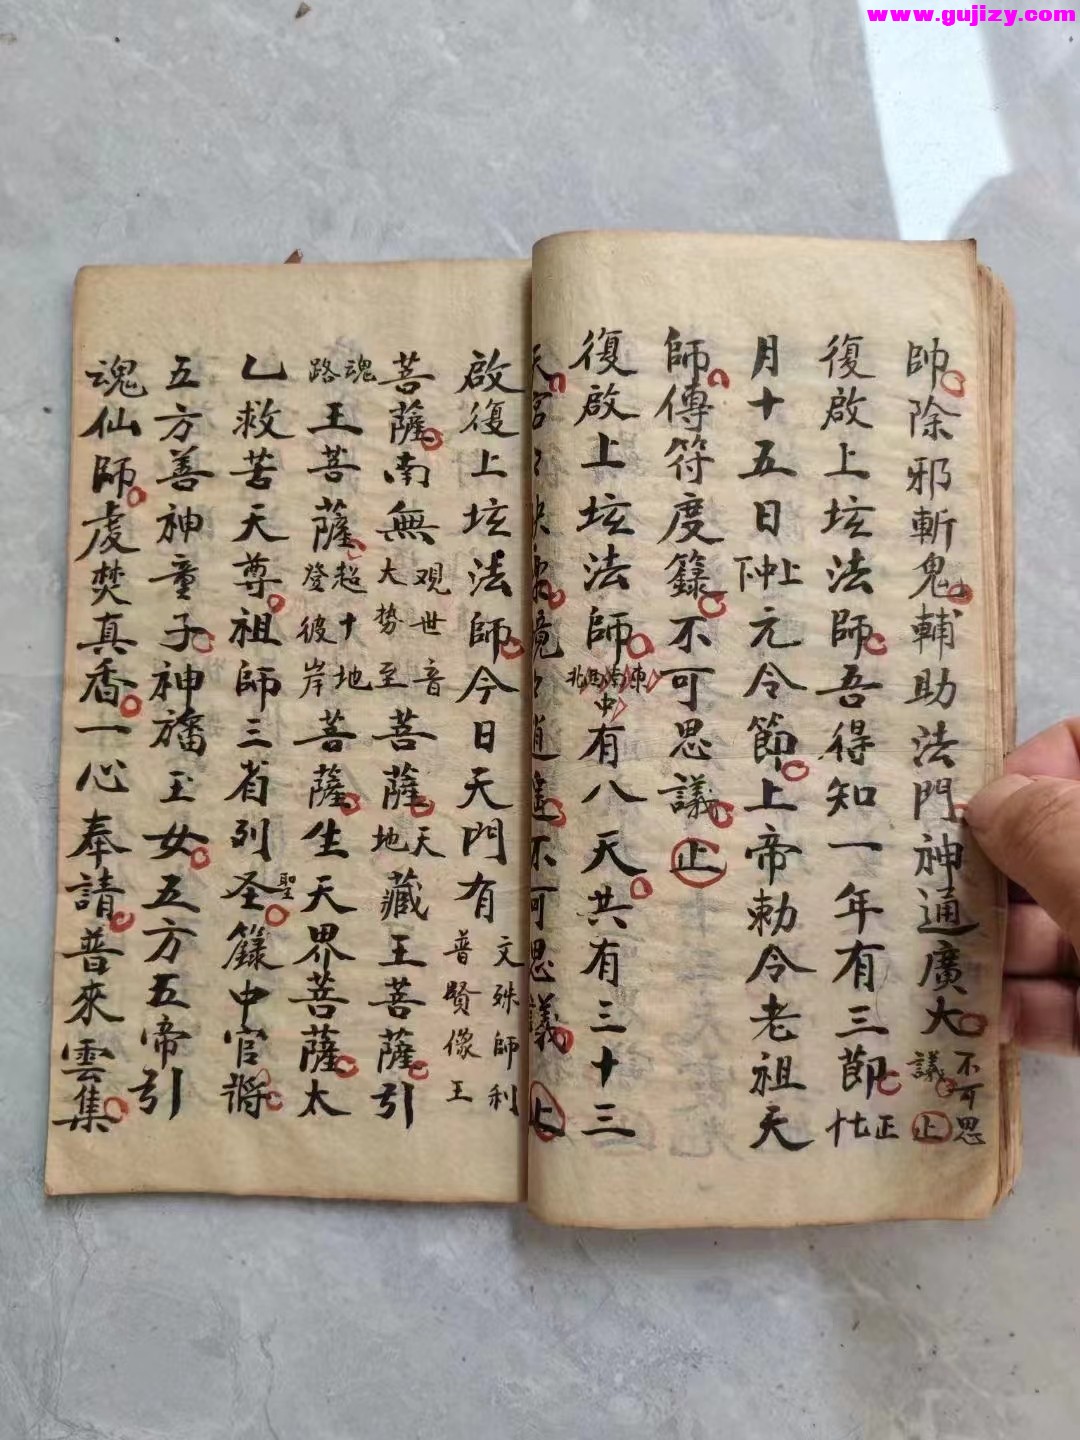 www.gujizy.com
帥除邪斬鬼輔助法門神通廣大不可思議止
復啟上坛法師吾得知一年有三節正七十
月十五日上中下元令節上帝勅令老祖天
師傳符度籙不可思議止
復啟上坛法師東南西北中有八天共有三十三
天宮 不可思議止
啟復上坛法師今日天門有文殊師利普賢像王
菩薩南無观世音大势至菩薩天地藏王菩薩引
魂路王菩薩超十地登彼岸菩薩生天界菩薩太
乙救苦天尊祖師三省列圣聖籙中官将
五方善神童子神旛玉女五方五帝引
魂仙師虔焚真香一心奉請普來雲集